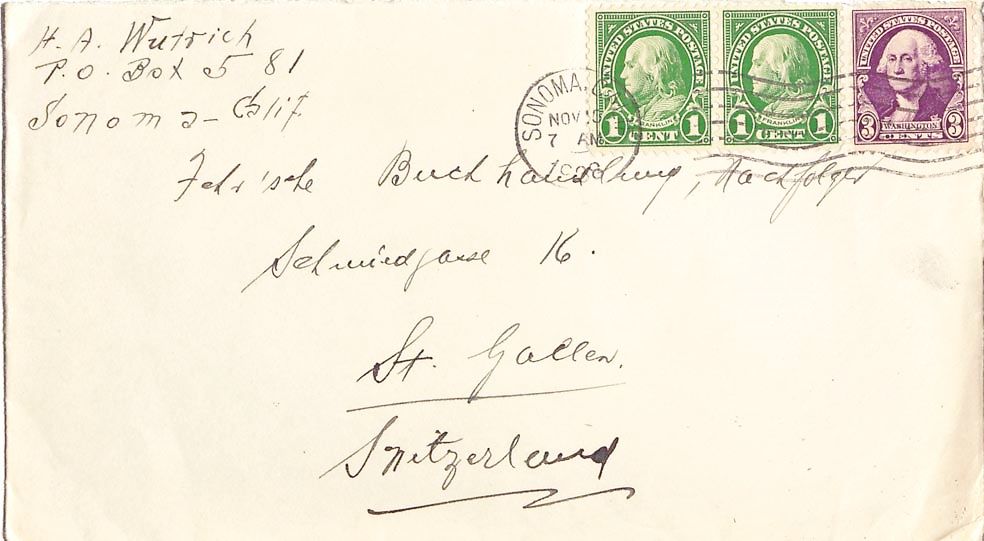 H. A. Wutrich
P.O. Box 581
Sonoma - Calif
UNITED STATES POSTAGE
1 CENT 1
FRANKLIN
UNITED STATES POSTAGE
1 CENT 1
FRANKLIN
UNITED STATES POSTAGE
WASHINGTON
3 CENTS 3
SONOMA,
NOV 15
7 AM
Fehr'sche Buchhandlung, Nachfolger
Schmiedgasse 16.
St. Gallen.
Switzerland